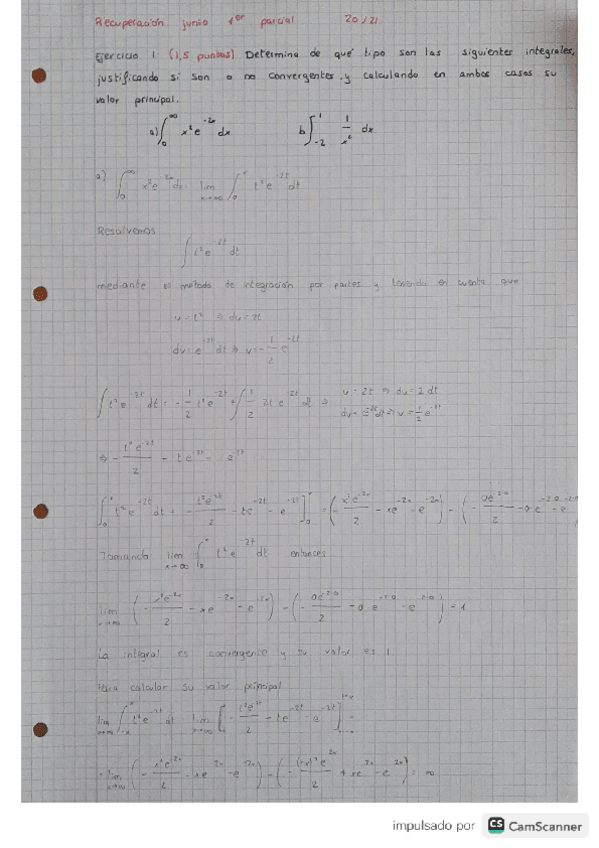 Recuperación junio 1er parcial 20/21
Ejercicio 1 (1,5 puntos) Determina de qué tipo son las siguientes integrales,
justificando si son o no convergentes y calculando en ambos casos su
valor principal.
a) ∫₀^∞ x²e^(-2x) dx b) ∫₋₂^1 1/x² dx
a) ∫₀^∞ x²e^(-2x) dx = lim x→∞ ∫₀^x t²e^(-2t) dt
Resolvemos
∫ t²e^(-2t) dt
mediante el metodo de integración por partes y teniendo en cuenta que
u = t² ⇒ du = 2t
dv = e^(-2t) dt ⇒ v = -1/2 e^(-2t)
∫ t²e^(-2t) dt = -1/2 t²e^(-2t) + ∫ 1/2 2t e^(-2t) dt ⇒ u = 2t ⇒ du = 2 dt
⇒ - t²e^(-2t)/2 - te^(-2t) - e^(-2t)
∫₀^x t²e^(-2t) dt = - t²e^(-2t)/2 - te^(-2t) - e^(-2t) ]₀^x = (- x²e^(-2x)/2 - xe^(-2x) - e^(-2x)) - (- 0e^(-2·0)/2 - 0 e^(-2·0) - e^(-2·0)
Tomando lim x→∞ ∫₀^x t²e^(-2t) dt entonces
lim x→∞ (- x²e^(-2x)/2 - xe^(-2x) - e^(-2x)) - (- 0e^(-2·0)/2 - 0 e^(-2·0) - e^(-2·0)) = 1
La integral es convergente y su valor es 1.
Para calcular su valor principal
lim x→∞ ∫₋ₓ^x t²e^(-2t) dt lim x→∞ [ - t²e^(-2t)/2 - te^(-2t) - e^(-2t) ] =
= lim x→∞ (- x²e^(-2x)/2 - xe^(-2x) - e^(-2x)) - (- (-x)²e^(2x)/2 + xe^(2x) - e^(2x)) = ∞
impulsado por CS CamScanner